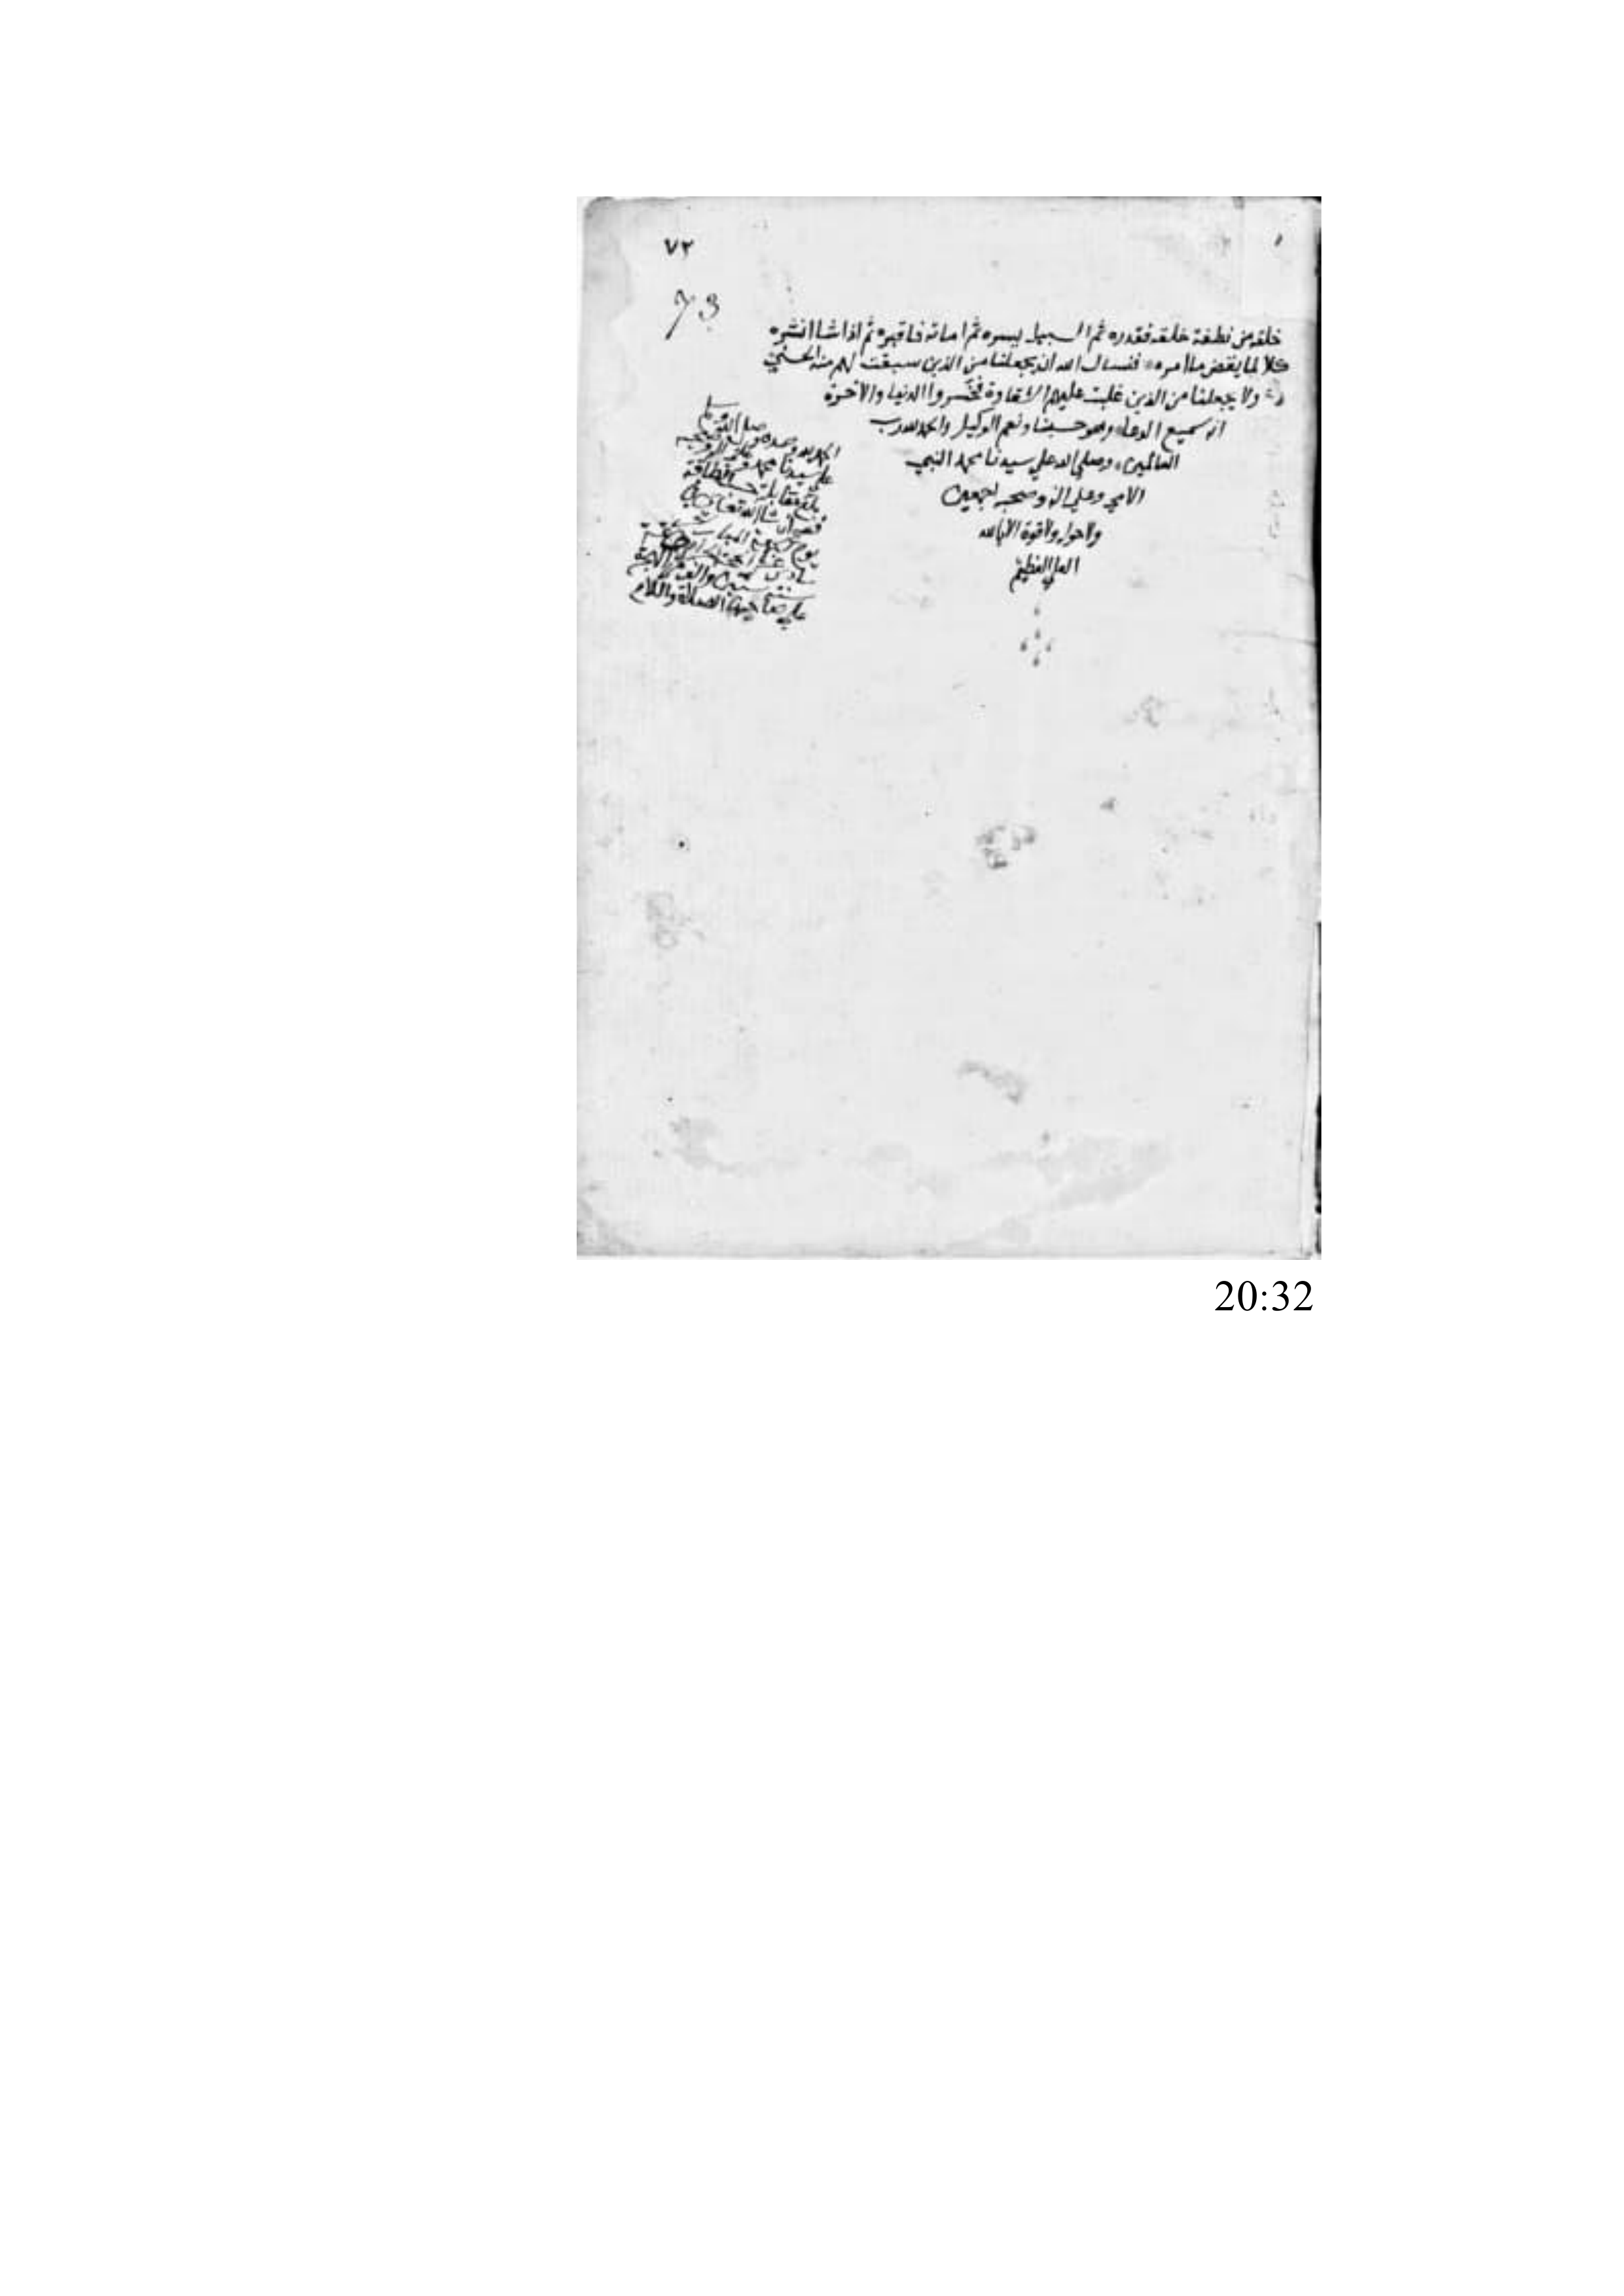 ٧٣
73
خلقه من نطفة خلقه فقدره ثم السبيل يسره ثم اماته فاقبره ثم اذا شا انشره
كلا لما يقض ما امره فنسال الله ان يجعلنا من الذين سبقت لهم منه الحسني
ولا يجعلنا من الذين غلبت عليهم الشقاوة فخسروا الدنيا والاخرة
انه سميع الدعا وهو حسبنا ونعم الوكيل والحمد لله رب
العالمين وصلي الله علي سيدنا محمد النبي
الامي وعلي اله وصحبه اجمعين
ولا حول ولا قوة الا بالله
العلي العظيم
الحمد لله وحده وصلي الله
علي سيدنا محمد وعلي اله وصحبه
بلغ مقابلة حسب الطاقة
فصح ان شا الله تعالي
يوم الجمعة المبارك
علي صاحبها الصلاة والسلام
20:32